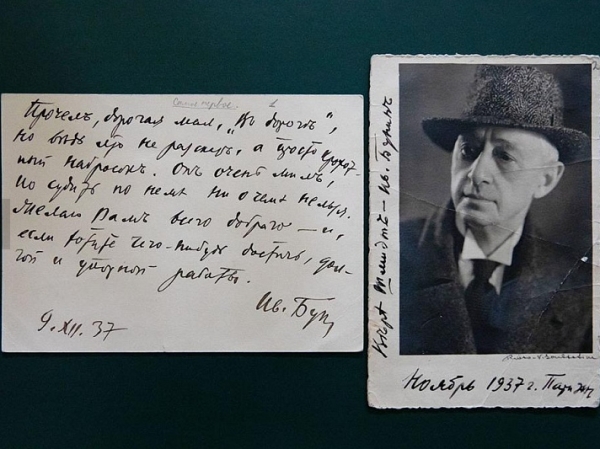 Прочелъ, дорогая моя, "Въ дорогѣ",
но вѣдь это не разсказъ, а просто крохот-
ный набросокъ. Онъ очень милъ,
но судить по немъ ни о чемъ нельзя.
Желаю Вамъ всего добраго — и,
если хотите чего-нибудь достичь, дол-
гой и упорной работы.
Ив. Бун
9. XII. 37
Ив. Бунинъ
Ноябрь 1937 г. Парижъ